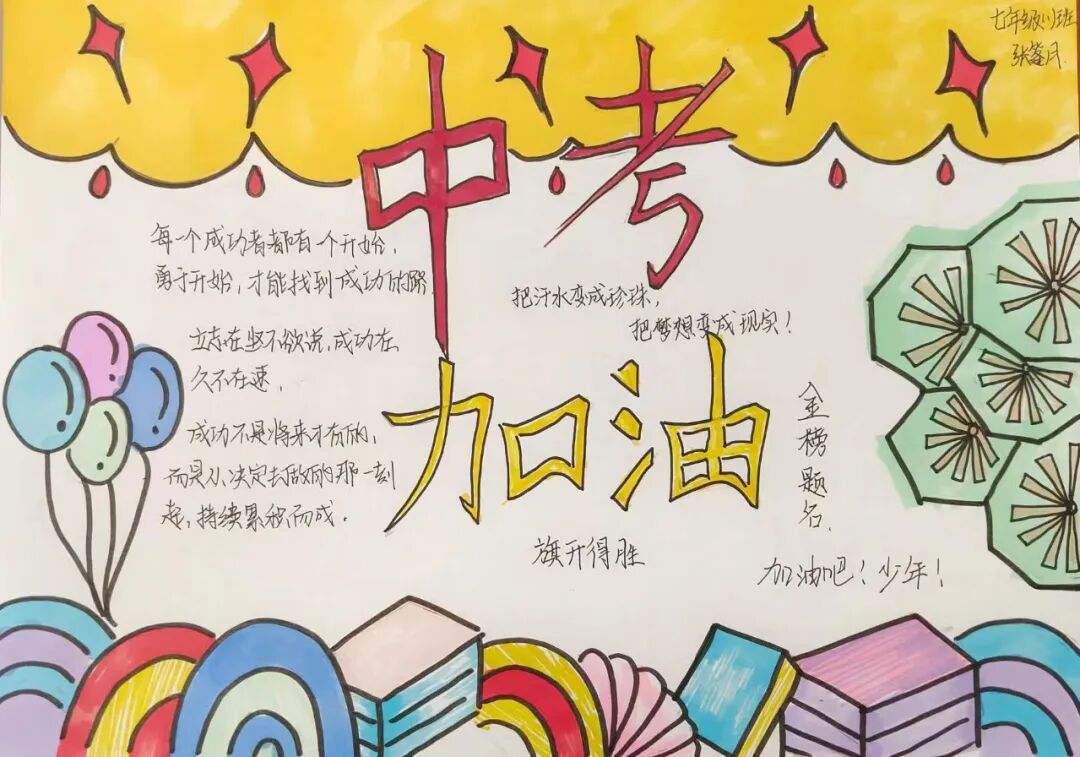 七年级(1)班
中考
加油
每一个成功者都有一个开始.
勇于开始,才能找到成功的路.
立志在坚不欲说,成功在
久不在速.
成功不是将来才有的,
而是从决定去做的那一刻
起,持续累积而成.
把汗水变成珍珠,
把梦想变成现实!
金榜题名.
旗开得胜
加油吧!少年!